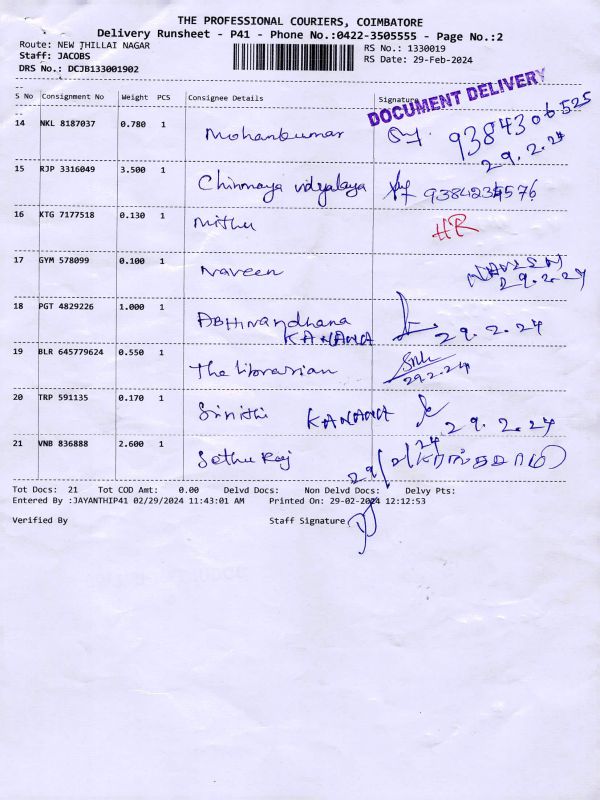 THE PROFESSIONAL COURIERS, COIMBATORE
Delivery Runsheet - P41 - Phone No.:0422-3505555 - Page No.:2
Route: NEW THILLAI NAGAR RS No.: 1330019
Staff: JACOBS RS Date: 29-Feb-2024
DRS No.: DCJB133001902
S No Consignment No Weight PCS Consignee Details Signature
DOCUMENT DELIVERY
14 NKL 8187037 0.780 1 Mohankumar 9384306525
29.2.24
15 RJP 3316049 3.500 1 Chinmaya vidyalaya 9384234576
16 KTG 7177518 0.130 1 Mithu HR
17 GYM 578099 0.100 1 Naveen NAVEEN
29.2.24
18 PGT 4829226 1.000 1 ABHINANDHANA
KANANA 29.2.24
19 BLR 645779624 0.550 1 The librarian
29.2.24
20 TRP 591135 0.170 1 Srinithi KANANA 29.2.24
21 VNB 836888 2.600 1 Sethu Raj 29/2/24
Tot Docs: 21 Tot COD Amt: 0.00 Delvd Docs: Non Delvd Docs: Delvy Pts:
Entered By :JAYANTHIP41 02/29/2024 11:43:01 AM Printed On: 29-02-2024 12:12:53
Verified By Staff Signature